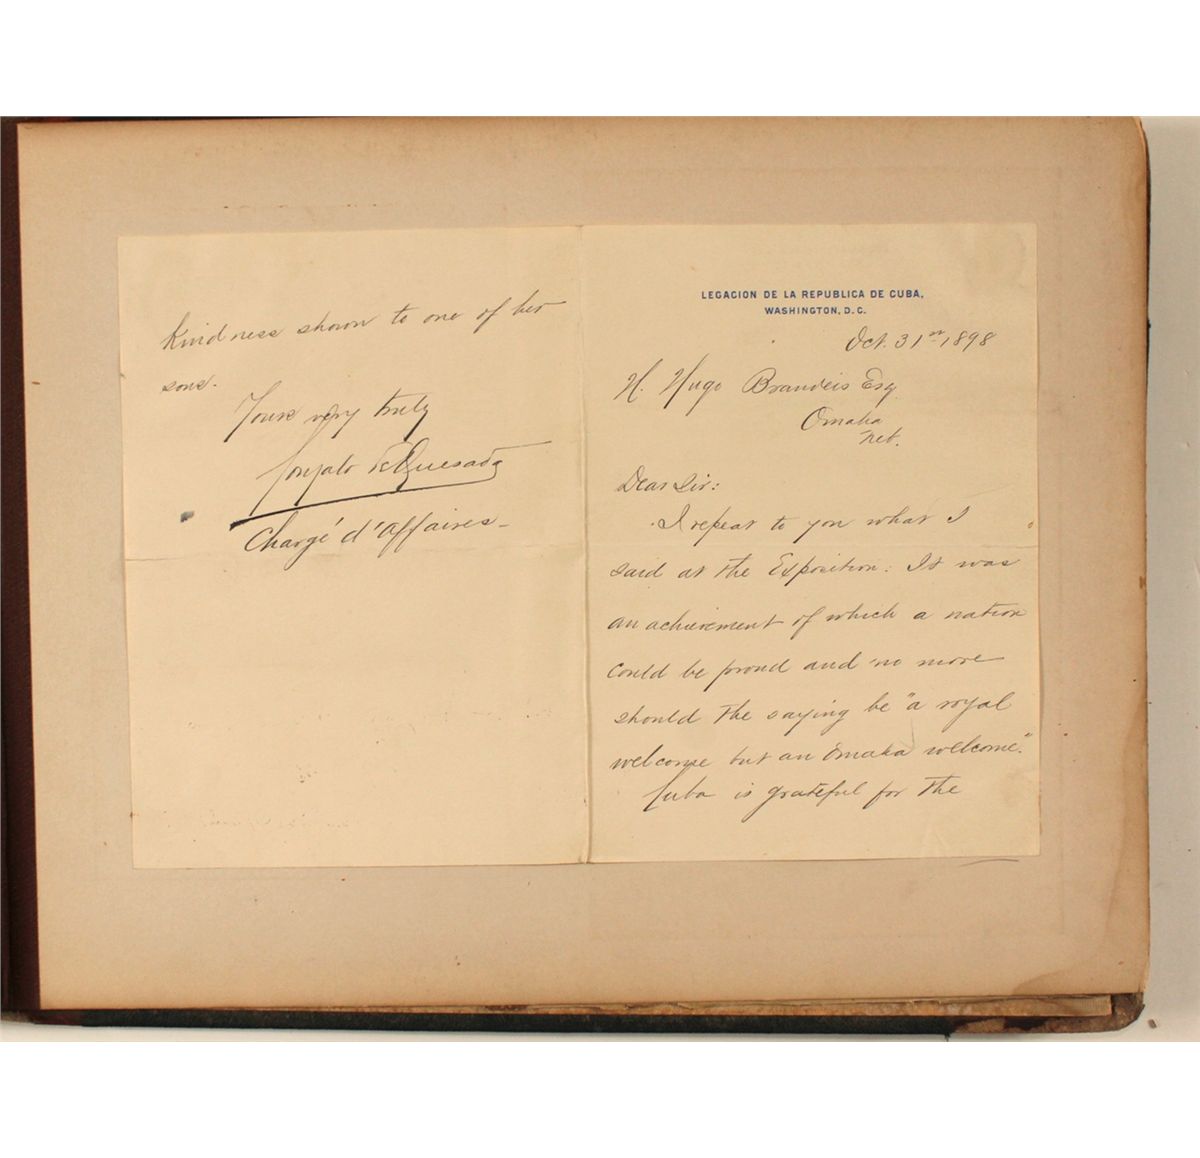 LEGACION DE LA REPUBLICA DE CUBA,
WASHINGTON, D.C.
Oct. 31st 1898
H. Hugo Brandeis Esq
Omaha
Neb.
Dear Sir:
I repeat to you what I
said at the Exposition: It was
an achievement of which a nation
could be proud and no more
should the saying be "a royal
welcome but an Omaha welcome."
Cuba is grateful for the
Kindness shown to one of her
sons.
Yours very truly
Gonzalo de Quesada
Chargé d'affaires